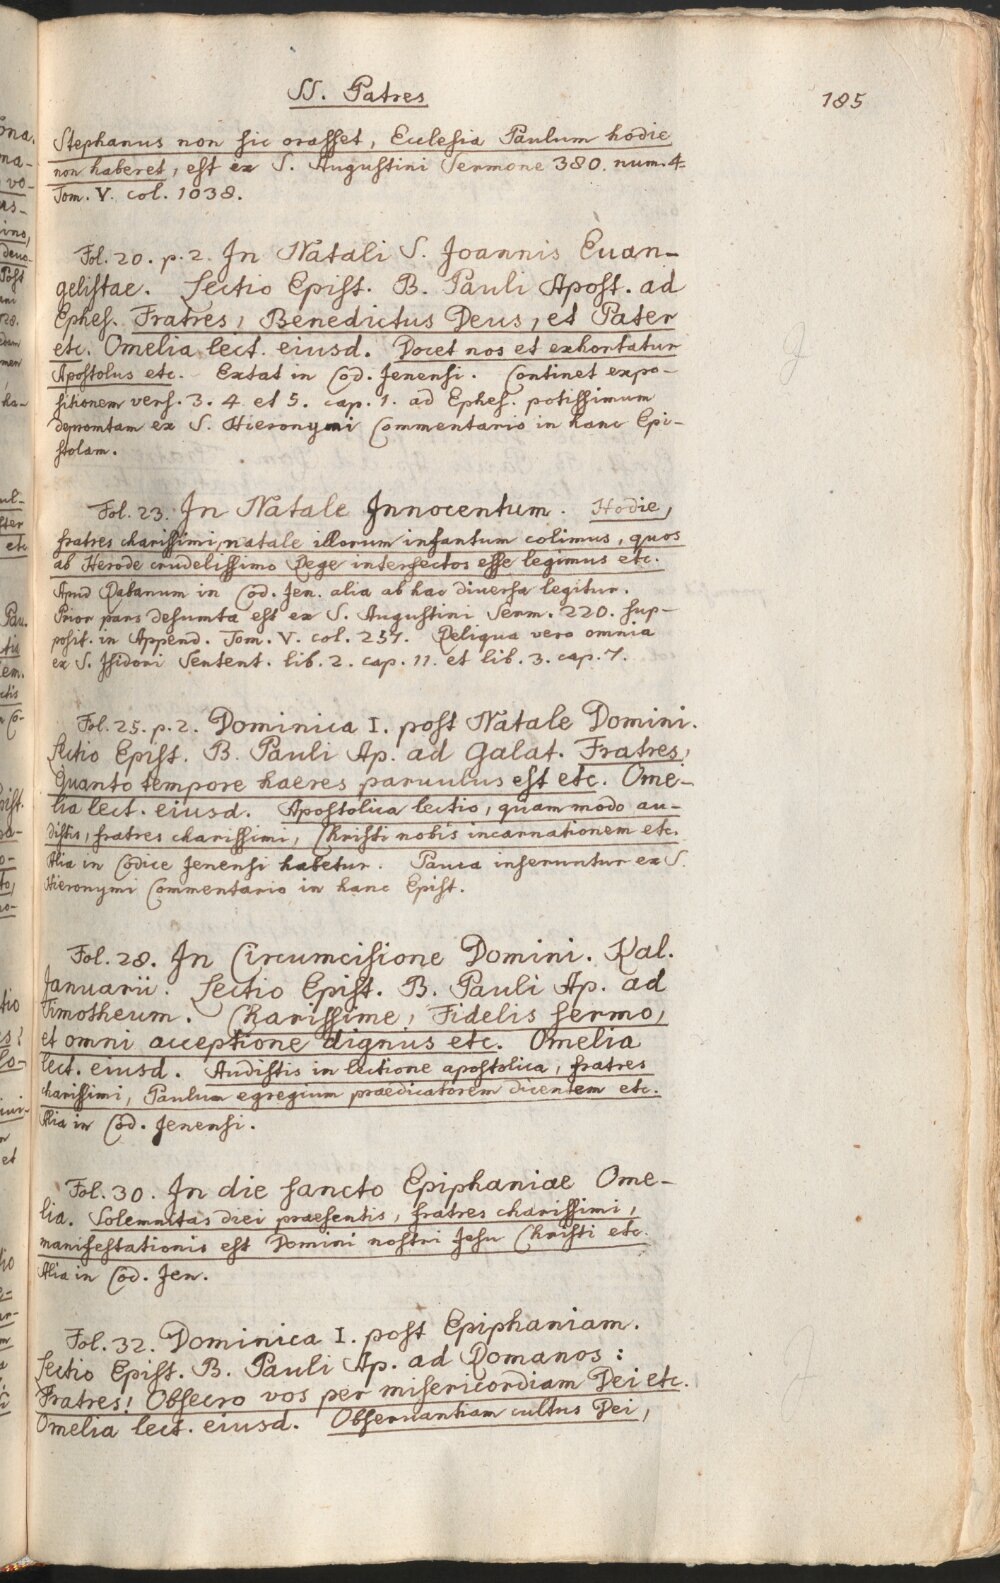 SS. Patres
185
Stephanus non sic orasset, Ecclesia Paulum hodie
non haberet, est ex S. Augustini Sermone 380. num. 4.
Tom. V. col. 1038.
Fol. 20. p. 2. In Natali S. Joannis Euan-
gelistae. Lectio Epist. B. Pauli Apost. ad
Ephes. Fratres, Benedictus Deus, et Pater
etc. Omelia lect. eiusd. Docet nos et exhortatur
Apostolus etc. Extat in Cod. Jenensi. Continet expo-
sitionem vers. 3. 4. et 5. cap. 1. ad Ephes. potissimum
depromtam ex S. Hieronymi Commentario in hanc Epi-
stolam.
Fol. 23. In Natale Innocentum. Hodie,
fratres charissimi, natale illorum infantum colimus, quos
ab Herode crudelissimo Rege interfectos esse legimus etc.
Apud Rabanum in Cod. Jen. alia ab hac diversa legitur.
Prior pars desumta est ex S. Augustini Serm. 220. sup-
posit. in Append. Tom. V. col. 257. Reliqua vero omnia
ex S. Isidori Sentent. lib. 2. cap. 11. et lib. 3. cap. 7.
Fol. 25. p. 2. Dominica I. post Natale Domini.
Lectio Epist. B. Pauli Ap. ad Galat. Fratres,
Quanto tempore haeres paruulus est etc. Ome-
lia lect. eiusd. Apostolica lectio, quam modo au-
distis, fratres charissimi, Christi nobis incarnationem etc.
Alia in Codice Jenensi habetur. Pauca inseruntur ex S.
Hieronymi Commentario in hanc Epist.
Fol. 28. In Circumcisione Domini. Kal.
Januarii. Lectio Epist. B. Pauli Ap. ad
Timotheum. Charissime, Fidelis sermo,
et omni acceptione dignus etc. Omelia
lect. eiusd. Audistis in lectione apostolica, fratres
charissimi, Paulum egregium praedicatorem dicentem etc.
Alia in Cod. Jenensi.
Fol. 30. In die sancto Epiphaniae Ome-
lia. Solemnitas diei praesentis, fratres charissimi,
manifestationis est Domini nostri Jesu Christi etc.
Alia in Cod. Jen.
Fol. 32. Dominica I. post Epiphaniam.
Lectio Epist. B. Pauli Ap. ad Romanos:
Fratres! Obsecro vos per misericordiam Dei etc.
Omelia lect. eiusd. Obseruantiam cultus Dei,